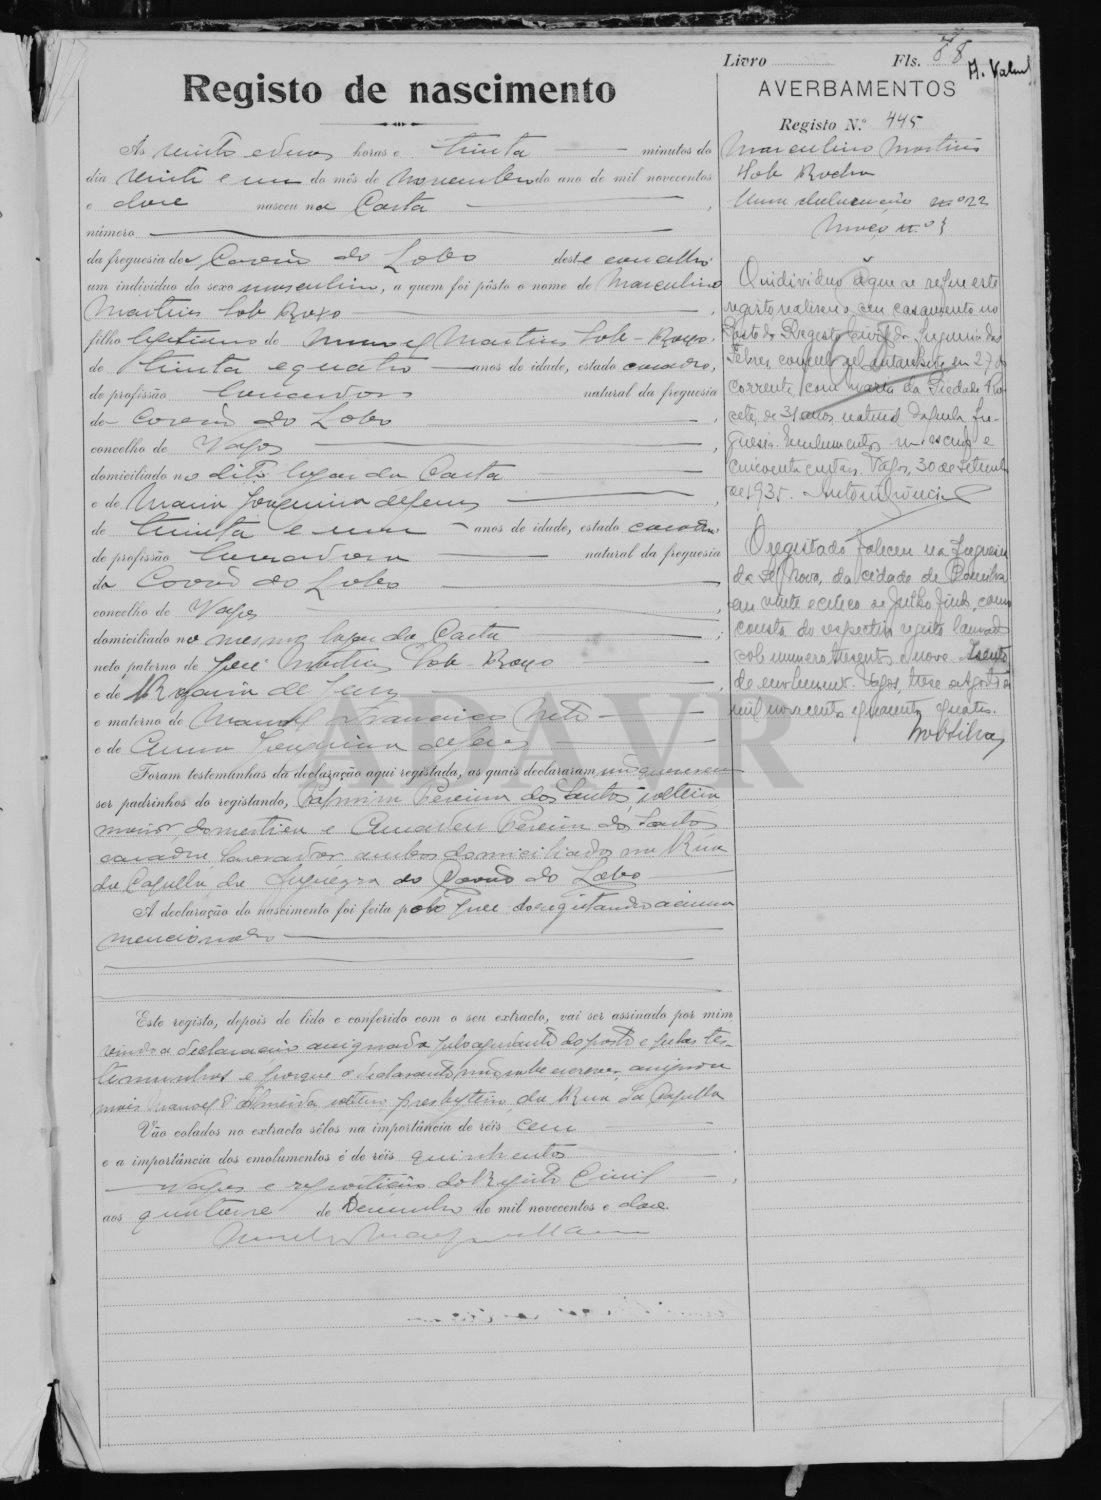 Livro Fls. 78
A. Valent
Registo de nascimento
AVERBAMENTOS
Registo N.º 445
Às vinte e duas horas e trinta minutos do
dia vinte e um do mês de Novembro do ano de mil novecentos
e doze nasceu no Casta
número
da freguesia de Covão do Lobo deste concelho
um indivíduo do sexo masculino, a quem foi pôsto o nome de Marculino
Martins Sob Roxo
filho legitimo de Manuel Martins Sob-Roxo
de trinta e quatro anos de idade, estado casado,
de profissão lavrador natural da freguesia
de Covão do Lobo
concelho de Vagos
domiciliado no dito lugar da Casta
e de Maria Joaquina de Jesus
de trinta e um anos de idade, estado casada,
de profissão lavradora natural da freguesia
do Covão do Lobo
concelho de Vagos
domiciliado no mesmo lugar da Casta
neto paterno de José Martins Sob-Roxo
e de Rosaria de Jesus
e materno de Manuel Francisco Neto
e de Anna Joaquina de Jesus
Foram testemunhas da declaração aqui registada, as quais declararam não quererem
ser padrinhos do registando, Pereira dos Santos, solteira
maior, domestica e Amadeu Pereira dos Santos
casado lavrador ambos domiciliados na Rua
da Capella da freguezia do Covão do Lobo
A declaração do nascimento foi feita pelo pae do registando acima
mencionado
Este registo, depois de lido e conferido com o seu extracto, vai ser assinado por mim
sendo a declaração assignada pelo ajudante do posto e pelas tes-
temunhas e porque o declarante não sabe escrever, assignou
mais Manoel d'Almeida solteiro presbytero, da Rua da Capella
Vão colados no extracto sêlos na importância de réis cem
e a importância dos emolumentos é de réis quinhentos
Vagos e repartição do Registo Civil
aos quatorze de Dezembro de mil novecentos e doze.
Marculino Martins
Sob Rocha
Uma declaração nº 22
Maço n.º 1
O individuo a que se refere este
registo realisou o seu casamento no
Posto do Registo Civil da freguesia das
Febres, concelho de Cantanhede, em 27 do
corrente, com Maria da Piedade
de 31 anos, natural daquela fre-
guesia. Emolumentos um escudo e
cincoenta centavos. Vagos, 30 de Setembro
de 1935.
O registado faleceu na freguesia
da Sé Nova, da cidade de Coimbra
em vinte e cinco de Julho findo, como
consta do respectivo registo lavrado
sob numero trezentos e nove. Isento
de emolumentos. Vagos, treze de Agosto de
mil novecentos e quarenta e quatro.
ADAVR